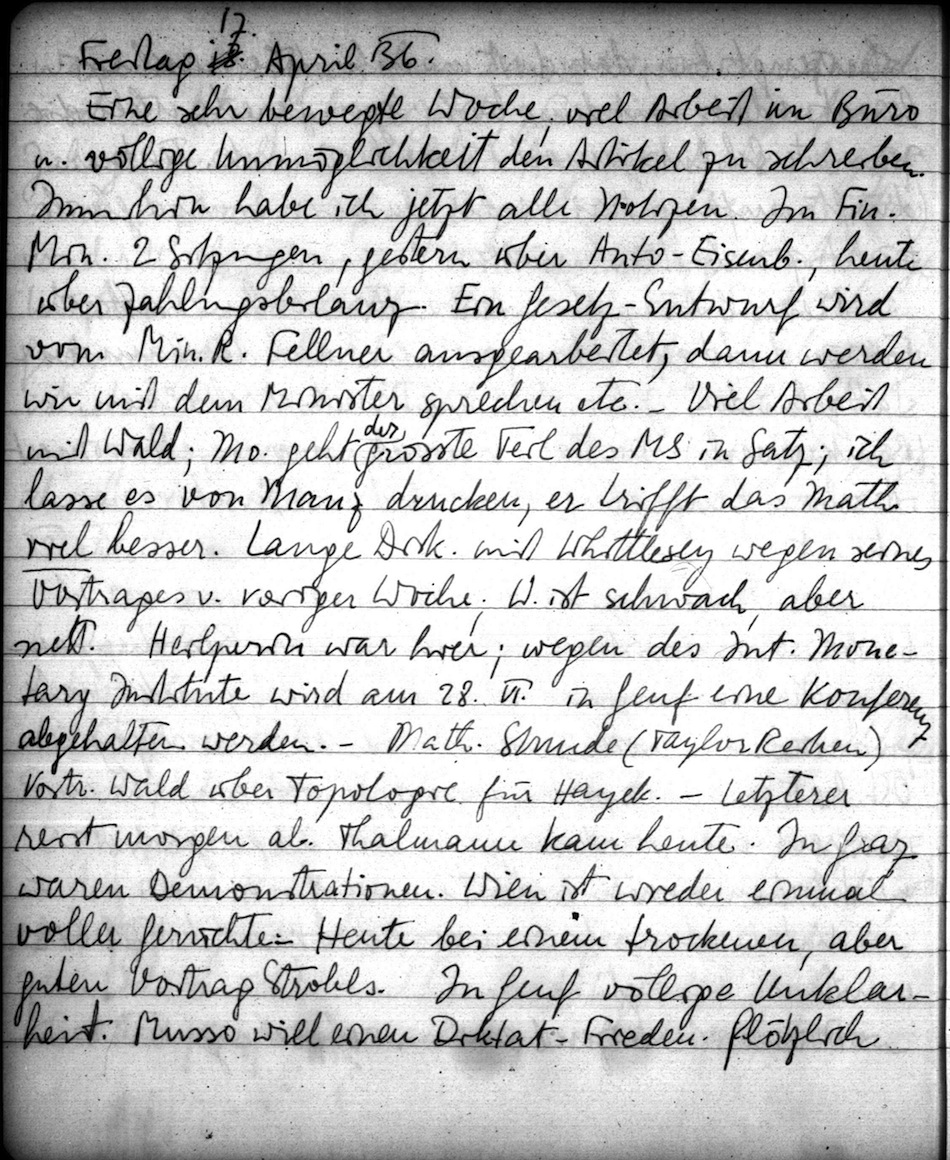 Freitag 17. April 36.
Eine sehr bewegte Woche, viel Arbeit im Büro
u. völlige Unmöglichkeit den Artikel zu schreiben.
Immerhin habe ich jetzt alle Notizen. Im Fin.
Min. 2 Sitzungen, gestern über Auto-Eisenb., heute
über Zahlungsbilanz. Ein Gesetz-Entwurf wird
vom Min.R. Fellner ausgearbeitet, dann werden
wir mit dem Minister sprechen etc. - Viel Arbeit
mit Wald; Mo. geht der grösste Teil des MS in Satz; ich
lasse es von Manz drucken, er trifft das Math.
viel besser. Lange Disk. mit Whittlesey wegen seines
Vortrages v. voriger Woche; W. ist schwach, aber
nett. Heilperin war hier; wegen des Int. Mone-
tary Institute wird am 28. VI. in Genf eine Konferenz
abgehalten werden. - Math. Stunde (Taylor Reihen)
Vortr. Wald über Topologie für Hayek. - Letzterer
reist morgen ab. Thalmann kam heute. In Graz
waren Demonstrationen. Wien ist wieder einmal
voller Gerüchte. - Heute bei einem trockenen, aber
guten Vortrag Strohls. In Genf völlige Unklar-
heit. Musso will einen Diktat-Frieden. Plötzlich